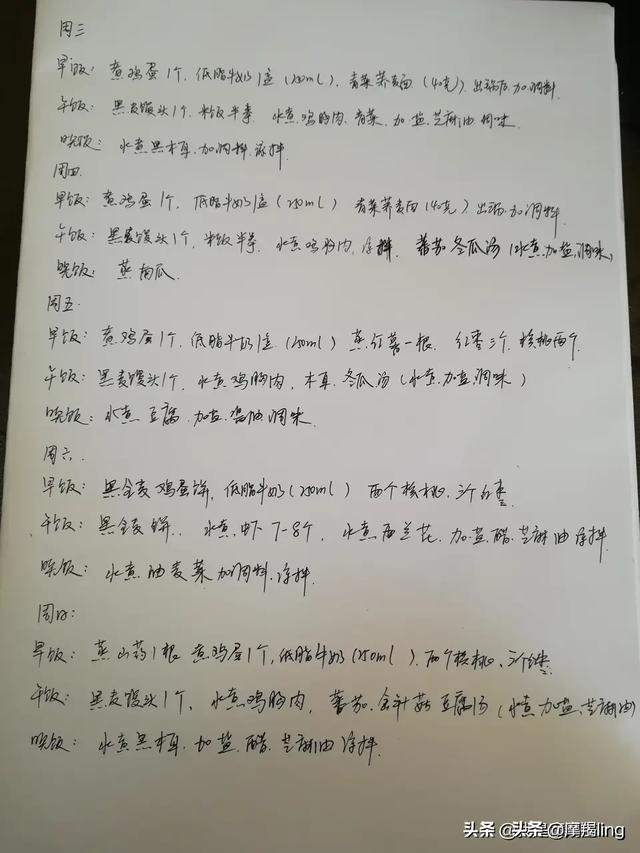 周三
早饭: 煮鸡蛋1个, 低脂牛奶1盒(250ml), 青菜荞麦面(40克), 出锅后加调料
午饭: 黑麦馒头1个, 米饭半拳 水煮鸡胸肉, 青菜, 加盐,芝麻油调味
晚饭: 水煮黑木耳,加调料凉拌
周四
早饭: 煮鸡蛋1个, 低脂牛奶1盒(250ml) 青菜荞麦面(40克), 出锅加调料
午饭: 黑麦馒头1个, 米饭半拳, 水煮鸡胸肉,凉拌, 蕃茄冬瓜汤(水煮,加盐,调味)
晚饭: 蒸南瓜
周五
早饭: 煮鸡蛋1个, 低脂牛奶1盒(250ml) 蒸红薯一根, 红枣三个, 核桃两个
午饭: 黑麦馒头1个, 水煮鸡胸肉, 木耳,冬瓜汤(水煮,加盐,调味)
晚饭: 水煮豆腐,加盐,酱油,调味
周六
早饭: 黑全麦鸡蛋饼, 低脂牛奶(250ml) 两个核桃,三个红枣
午饭: 黑全麦饼, 水煮虾7-8个, 水煮西兰花,加盐,醋,芝麻油凉拌
晚饭: 水煮油麦菜加调料,凉拌
周日:
早饭: 蒸山药1根 煮鸡蛋1个,低脂牛奶(250ml), 两个核桃,三个红枣
午饭: 黑麦馒头1个, 水煮鸡胸肉, 蕃茄,金针菇豆腐汤(水煮加盐,芝麻油)
晚饭: 水煮黑木耳,加盐,醋,芝麻油凉拌
头条 @摩羯ling